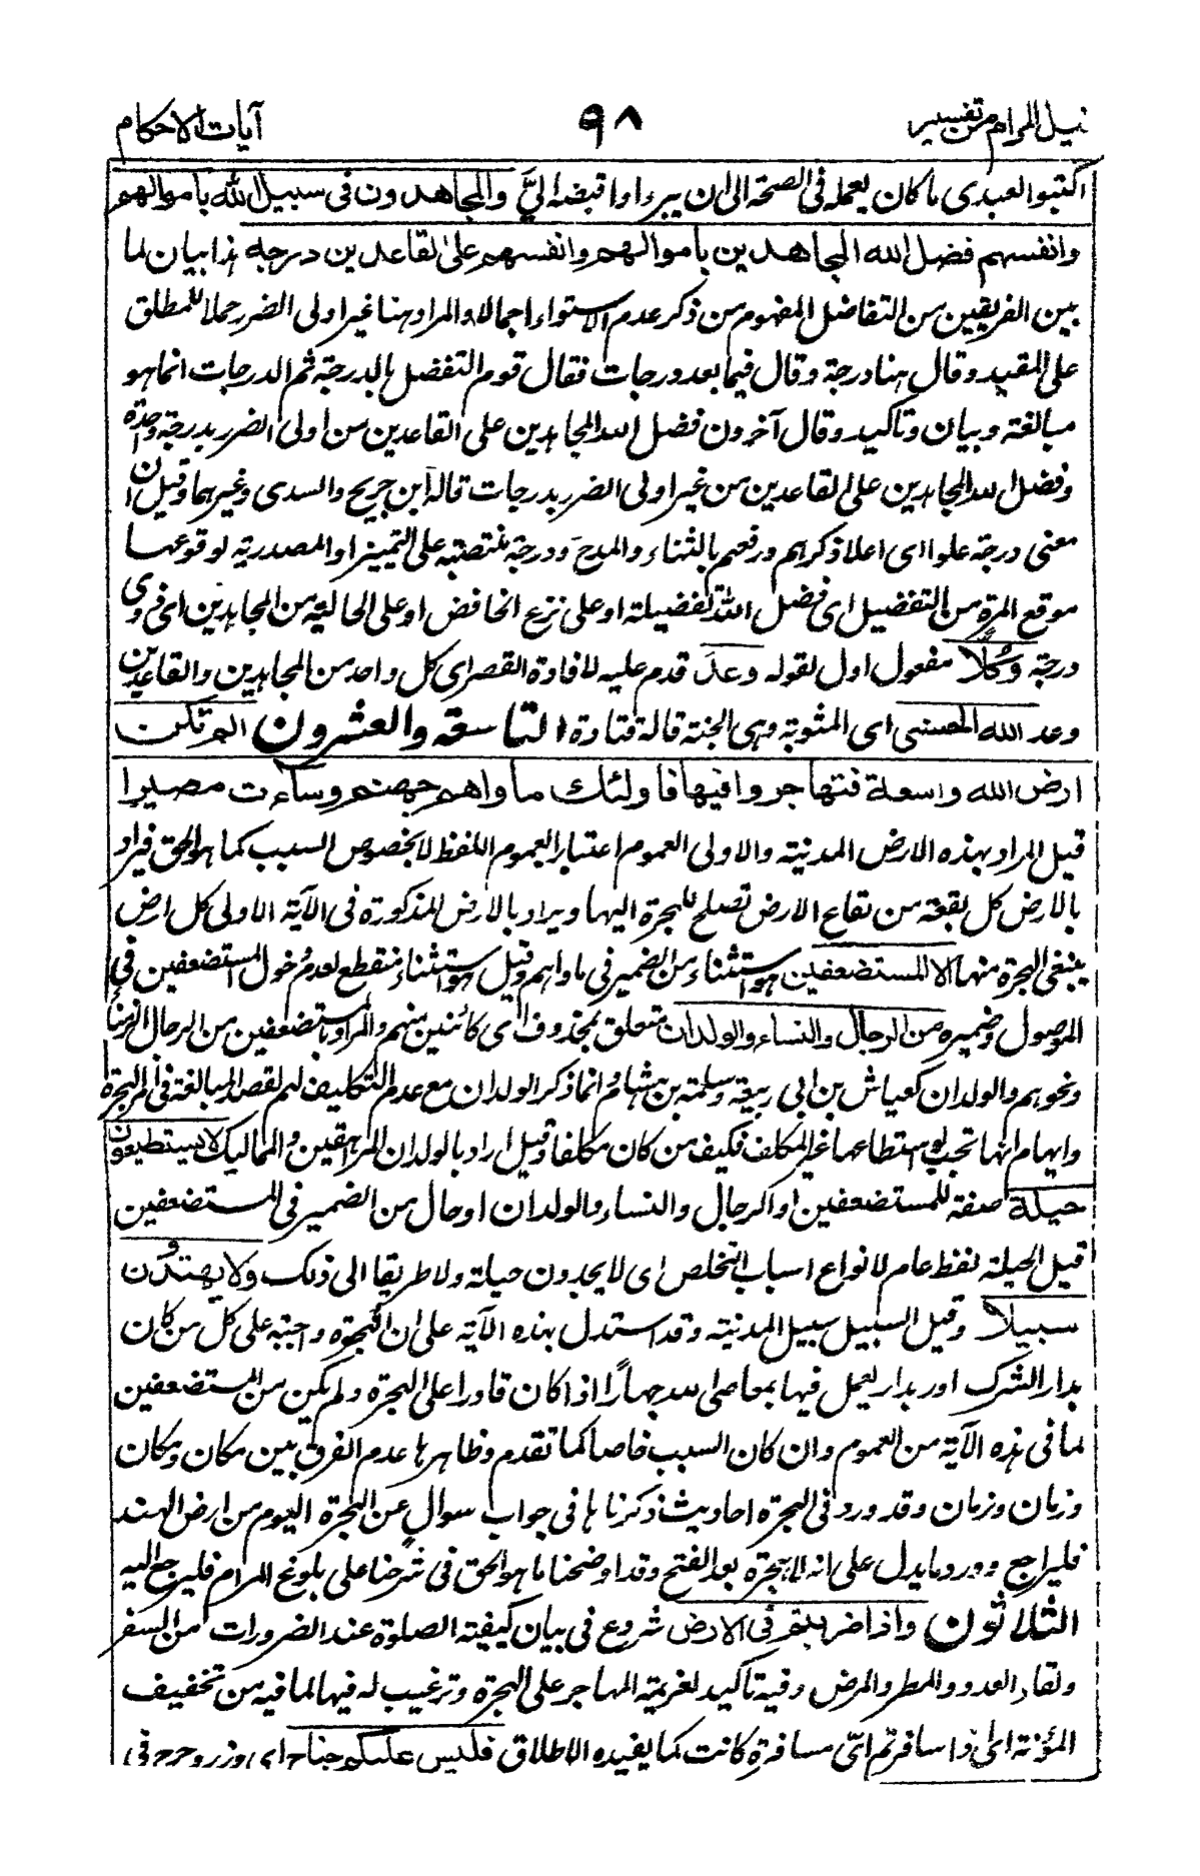 نيل المرام من تفسير ٩٨ آيات الاحكام
اكتبوا لعبدى ما كان يعمله فى الصحة الى ان يبرء او اقبضه الىَّ والمجاهدون فى سبيل الله باموالهم
وانفسهم فضل الله المجاهدين باموالهم وانفسهم على القاعدين درجة هذا بيان لما
بين الفريقين من التفاضل المفهوم من ذكر عدم الاستواء اجمالا والمراد هنا غير اولى الضرر حملا للمطلق
على المقيد وقال هنا درجة وقال فيما بعد درجات فقال قوم التفضل بالدرجة ثم الدرجات انما هو
مبالغة وبيان وتاكيد وقال آخرون فضل الله المجاهدين على القاعدين من اولى الضرر بدرجة واحدة
وفضل الله المجاهدين على القاعدين من غير اولى الضرر بدرجات قاله ابن جريج والسدى وغيرهما وقيل ان
معنى درجة علوا اى اعلا ذكرهم ورفعهم بالثناء والمدح ودرجة منتصبة على التميز او المصدرية لوقوعها
موقع المرة من التفضيل اى فضل الله تفضيلة او على نزع الخافض او على الحالية من المجاهدين اى ذوى
درجة وكُلًّا مفعول اول لقوله وعد قدم عليه لافادة القصر اى كل واحد من المجاهدين والقاعدين
وعد الله الحسنى اى المثوبة وهى الجنة قاله قتادة التاسعة والعشرون الم تكن
ارض الله واسعة فتهاجروا فيها فاولئك ماواهم جهنم وساءت مصيرا
قيل المراد بهذه الارض المدينة والاولى العموم اعتبارا لعموم اللفظ لا بخصوص السبب كما هو الحق فيراد
بالارض كل بقعة من بقاع الارض تصلح للهجرة اليها ويراد بالارض المذكورة فى الآية الاولى كل ارض
ينبغى الهجرة منها الا المستضعفين هو استثناء من الضمير فى ماواهم وقيل هو استثناء منقطع لعدم دخول المستضعفين فى
الموصول وضميره من الرجال والنساء والولدان متعلق بمحذوف اى كائنين منهم والمراد بالمستضعفين من الرجال الزمنا
ونحوهم والولدان كعياش بن ابى ربيعة وسلمة بن هشام وانما ذكر الولدان مع عدم التكليف لهم لقصد المبالغة فى امر الهجرة
وايهام انها تجب لو استطاعها غير المكلف فكيف من كان مكلفا وقيل اراد بالولدان المراهقين والمماليك لا يستطيعون
حيلة صفة للمستضعفين او الرجال والنساء والولدان او حال من الضمير فى المستضعفين
قيل الحيلة لفظ عام لانواع اسباب التخلص اى لا يجدون حيلة ولا طريقا الى ذلك ولا يهتدون
سبيلا وقيل السبيل سبيل المدينة وقد استدل بهذه الآية على ان الهجرة واجبة على كل من كان
بدار الشرك اور بدار يعمل فيها بمعاصى الله جهارًا اذا كان قادرا على الهجرة ولم يكن من المستضعفين
لما فى هذه الآية من العموم وان كان السبب خاصا كما تقدم وظاهرها عدم الفرق بين مكان ومكان
وزمان وزمان وقد ورد فى الهجرة احاديث ذكرناها فى جواب سوال عن الهجرة اليوم من ارض الهند
فليراجع وورد ما يدل على انه لا هجرة بعد الفتح وقد اوضحنا ما هو الحق فى شرحنا على بلوغ المرام فليرجع اليه
الثلاثون واذا ضربتم فى الارض شروع فى بيان كيفية الصلوة عند الضرورات من السفر
ولقاء العدو والمطر والمرض وفيه تاكيد لعزيمة المهاجر على الهجرة وترغيب له فيها لما فيه من تخفيف
المؤنة اى اذا سافرتم اىّ مسافرة كانت كما يفيده الاطلاق فليس عليكم جناح اى وزر وحرج فى